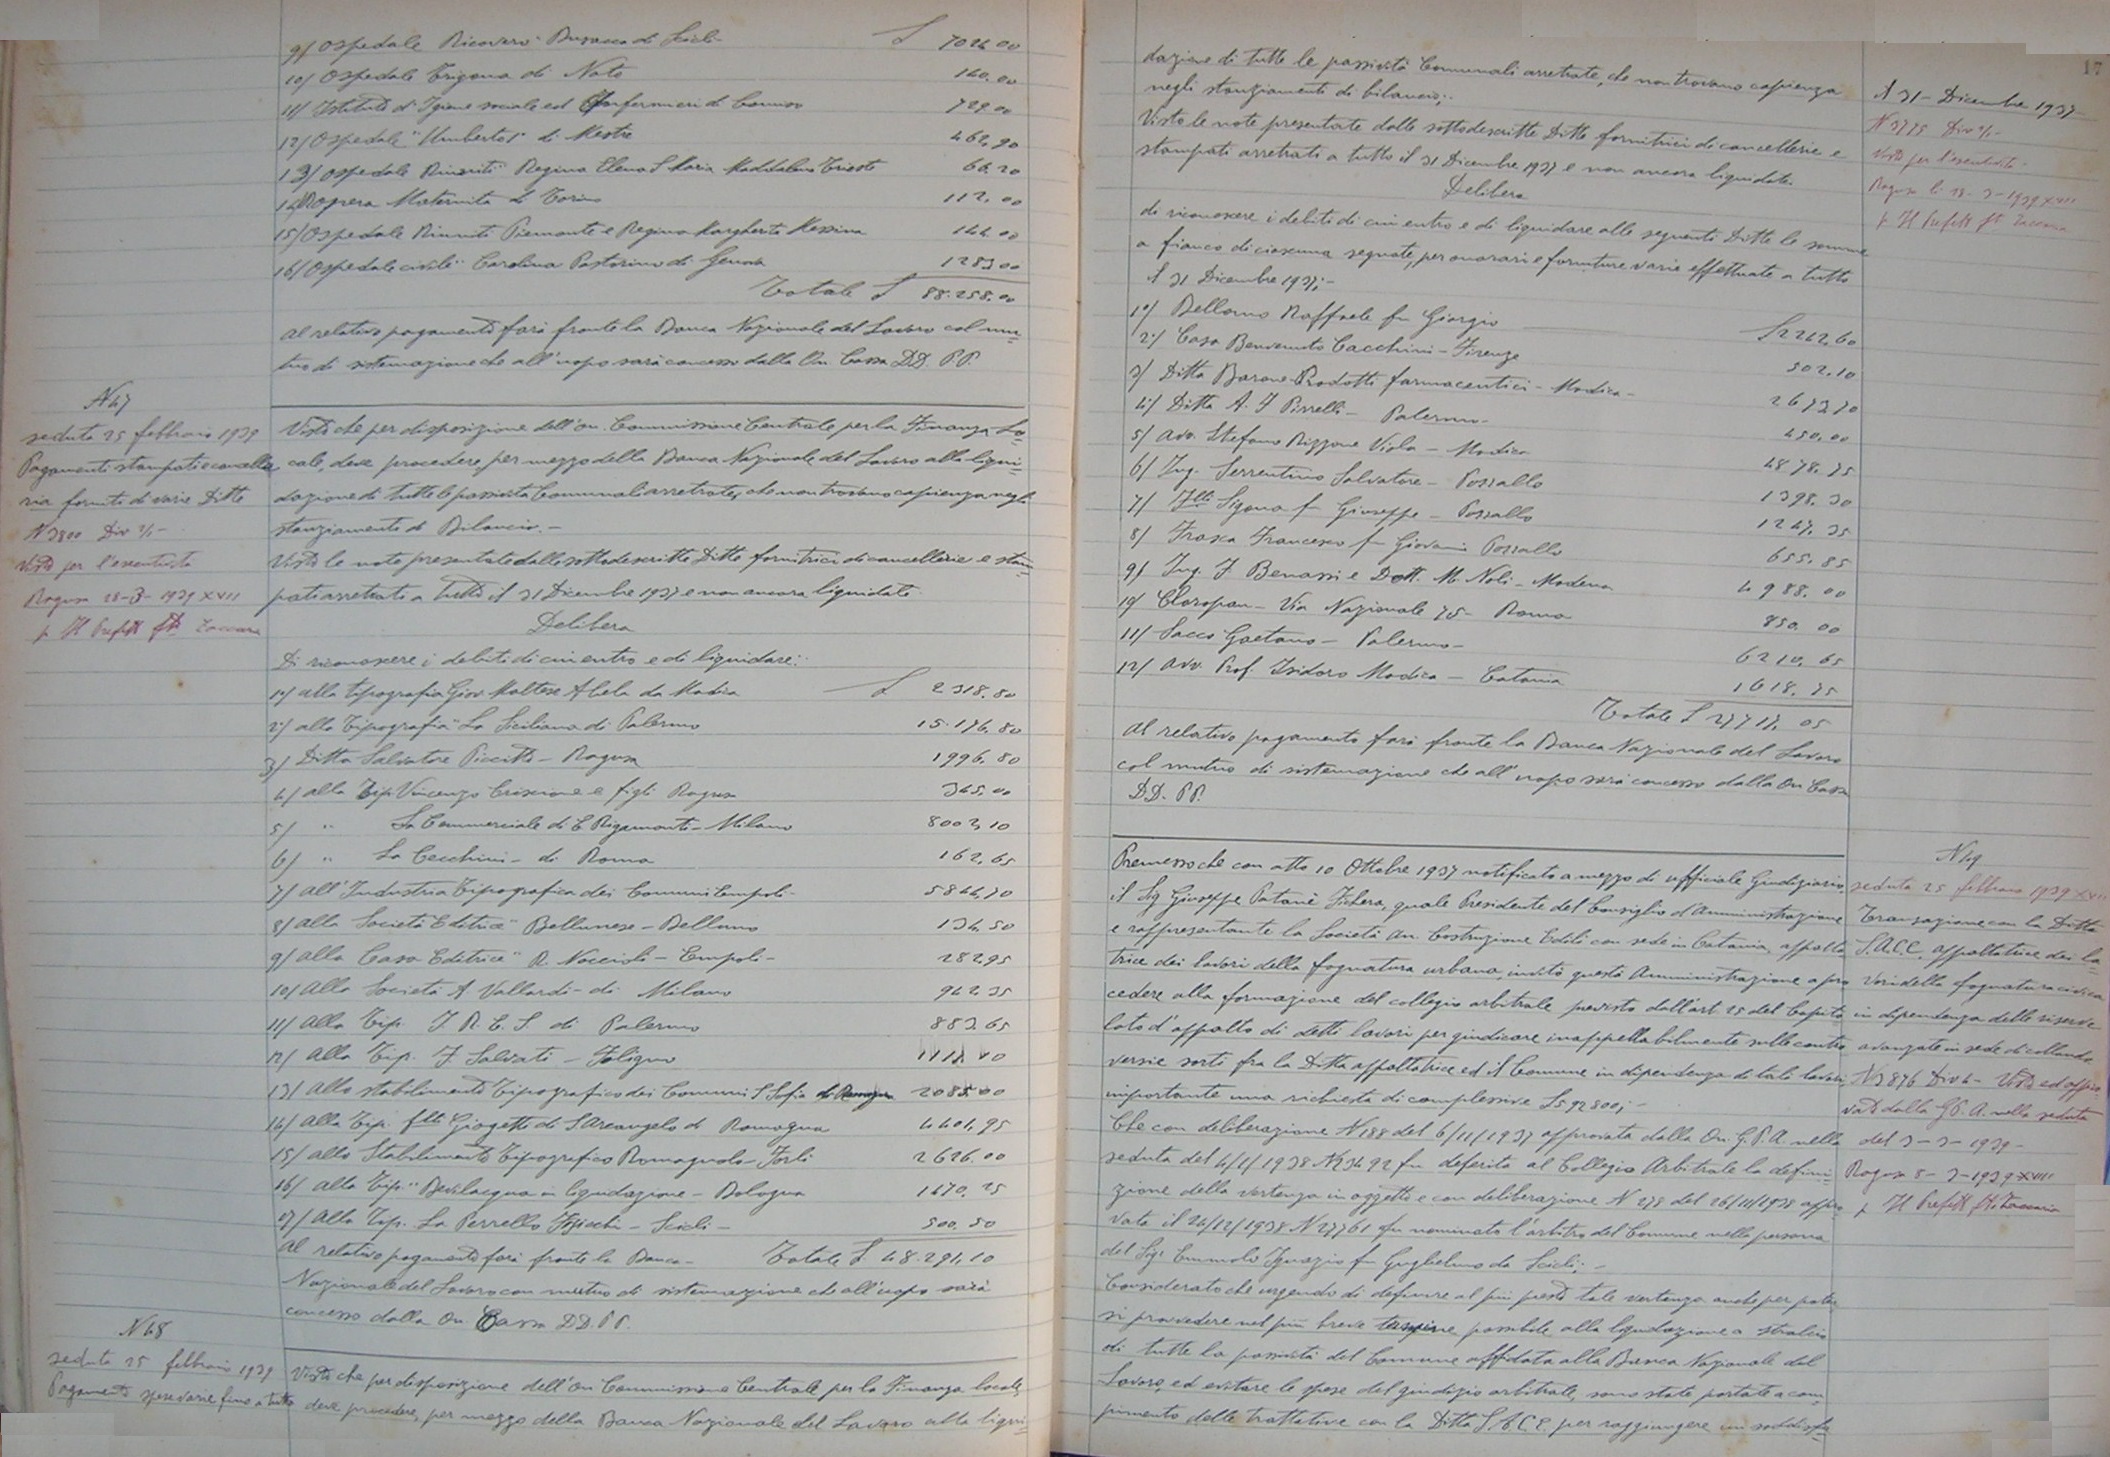 9/ Ospedale Ricovero "Busacca di Scicli £ 7024,00
10/ Ospedale Trigona di Noto 140,00
11/ Istituto d'Igiene sociale ed Infermieri di Comiso 729,00
12/ Ospedale "Umberto I" di Mestre 462,90
13/ Ospedale Riuniti "Regina Elena S. Maria Maddalena Trieste 66,20
14/ Opera Maternità di Torino 112,00
15/ Ospedale Riuniti Piemonte e Regina Margherita Messina 144,00
16/ Ospedale civile "Carolina Pastorino di Genova 1283,00
Totale £ 88.258,00
Al relativo pagamento farà fronte la Banca Nazionale del Lavoro col mu-
tuo di sistemazione che all'uopo sarà concesso dalla On. Cassa DD. PP.
N 47
seduta 25 febbraio 1939
Pagamenti stampati e cancelle
ria forniti di varie Ditte
N 3800 Div 2/1 -
Visto per l'esecutività
Ragusa 28-3-1939 XVII
p. Il Prefetto fto Zaccaria
Visto che per disposizione dell'on. Commissione Centrale per la Finanza Lo-
cale, deve procedere, per mezzo della Banca Nazionale del Lavoro alla liqui-
dazione di tutte le passività Comunali arretrate, che non trovano capienza negli
stanziamenti di Bilancio. -
Visto le note presentate dalle sottodescritte Ditte fornitrici di cancellerie e stam-
pati arretrati a tutto il 31 Dicembre 1937 e non ancora liquidate
Delibera
Di riconoscere i debiti di cui entro e di liquidare:
1°/ alla tipografia Giov. Maltese Abela da Modica £ 2318,80
2°/ alla Tipografia "La Siciliana di Palermo 15.176,80
3/ Ditta Salvatore Piccitto - Ragusa 1996,80
4/ alla Tip. Vincenzo Criscione e figli Ragusa 345,00
5/ " La Commerciale di C. Rigamonti - Milano 8002,10
6/ " La Cecchini - di Roma 162,65
7/ all'Industria Tipografica dei Comuni Empoli - 5844,70
8/ alla Società Editrice "Bellunese - Belluno 134,50
9/ alla Casa Editrice "R. Noccioli - Empoli - 282,95
10/ Alla Società A. Vallardi - di Milano 942,35
11/ Alla Tip. I. R. E. S. di Palermo 883,65
12/ Alla Tip. F. Salvati - Foligno
13/ Allo stabilimento Tipografico dei Comuni S. Sofia di Romagna 2085,00
14/ alla Tip. flli Giogetti di S. Arcangelo di Romagna 4401,95
15/ allo Stabilimento Tipografico Romagnolo - Forlì 2626,00
16/ alla Tip. "Bevilacqua in liquidazione - Bologna 1470,25
17/ Alla Tip. La Perrello Ignazio - Scicli - 500,50
Al relativo pagamento farà fronte la Banca - Totale £. 48.291,10
Nazionale del Lavoro con mutuo di sistemazione che all'uopo sarà
concesso dalla On. Cassa DD. PP.
N 48
seduta 25 febbraio 1939
Pagamento spese varie fino a tutto
Visto che per disposizione dell'On. Commissione Centrale per la Finanza locale,
deve procedere, per mezzo della Banca Nazionale del Lavoro alla liqui-
17
dazione di tutte le passività Comunali arretrate, che non trovano capienza
negli stanziamenti di bilancio;.
Visto le note presentate dalle sottodescritte Ditte fornitrici di cancellerie e
stampati arretrati a tutto il 31 Dicembre 1937 e non ancora liquidate.
Delibera
di riconoscere i debiti di cui entro e di liquidare alle seguenti Ditte le somme
a fianco di ciascuna segnate, per onorari e forniture varie effettuate a tutto
il 31 Dicembre 1937; -
il 31 - Dicembre 1937
N 3775 Div 2/1 -
Visto per l'esecutività -
Ragusa li 28-3-1939 XVII
p. Il Prefetto fto Zaccaria
1°/ Bellomo Raffaele fu Giorgio £ 2262,60
2°/ Casa Benvenuto Cacchini - Firenze 502,10
3/ Ditta Barone Prodotti farmaceutici - Modica - 2673,70
4/ Ditta A. F. Pirrelli - Palermo - 450,00
5/ Avv. Stefano Rizzone Viola - Modica 4878,75
6/ Ing. Sorrentino Salvatore - Pozzallo 1398,30
7/ Flli Sigona fu Giuseppe - Pozzallo 1247,35
8/ Frasca Francesco fu Giovanni Pozzallo 655,85
9/ Ing. F. Benassi e Dott. M. Noli - Modena 4988,00
10/ Cloropan - Via Nazionale 75 - Roma 850,00
11/ Sacco Gaetano - Palermo - 6210,65
12/ Avv. Prof. Isidoro Modica - Catania 1618,75
Totale £ 27717,05
Al relativo pagamento farà fronte la Banca Nazionale del Lavoro
col mutuo di sistemazione che all'uopo sarà concesso dalla On. Cassa
DD. PP.
N 49
seduta 25 febbraio 1939 XVII
Transazione con la Ditta
S.A.C.E. appaltatrice dei la-
vori della fognatura civica
in dipendenza delle riserve
avanzate in sede di collaudo
N 3876 Div 4 - Visto ed appro-
vato dalla G.P.A. nella seduta
del 3-3-1939 -
Ragusa 8-3-1939 XVII
p. Il Prefetto fto Zaccaria
Premesso che con atto 10 Ottobre 1937 notificato a mezzo di ufficiale Giudiziario,
il Sig Giuseppe Patanè Fichera, quale Presidente del Consiglio d'Amministrazione
e rappresentante la Società An. Costruzione Edili con sede in Catania, appalta-
trice dei lavori della fognatura urbana, invitò questa Amministrazione a pro
cedere alla formazione del collegio arbitrale previsto dall'art. 25 del Capito
lato d'appalto di detti lavori per giudicare inappellabilmente sulle contro
versie sorti fra la Ditta appaltatrice ed il Comune in dipendenza di tali lavori,
importante una richiesta di complessive £ 592800; -
Che con deliberazione N 188 del 6/11/1937 approvata dalla On. G.P.A. nella
seduta del 4/1/1938 N 23492 fu deferita al Collegio Arbitrale la defini-
zione della vertenza in oggetto e con deliberazione N 278 del 26/11/1938 appro-
vata il 24/12/1938 N 27761 fu nominato l'arbitro del Comune nella persona
del Sig. Emmolo Ignazio fu Guglielmo da Scicli; -
Considerato che urgendo di definire al più presto tale vertenza anche per poter
si provvedere nel più breve termine possibile alla liquidazione a stralcio
di tutte la passività del Comune affidata alla Banca Nazionale del
Lavoro, ed evitare le spese del giudizio arbitrale, sono state portate a com-
pimento delle trattative con la Ditta S.A.C.E. per raggiungere un soddisfa-